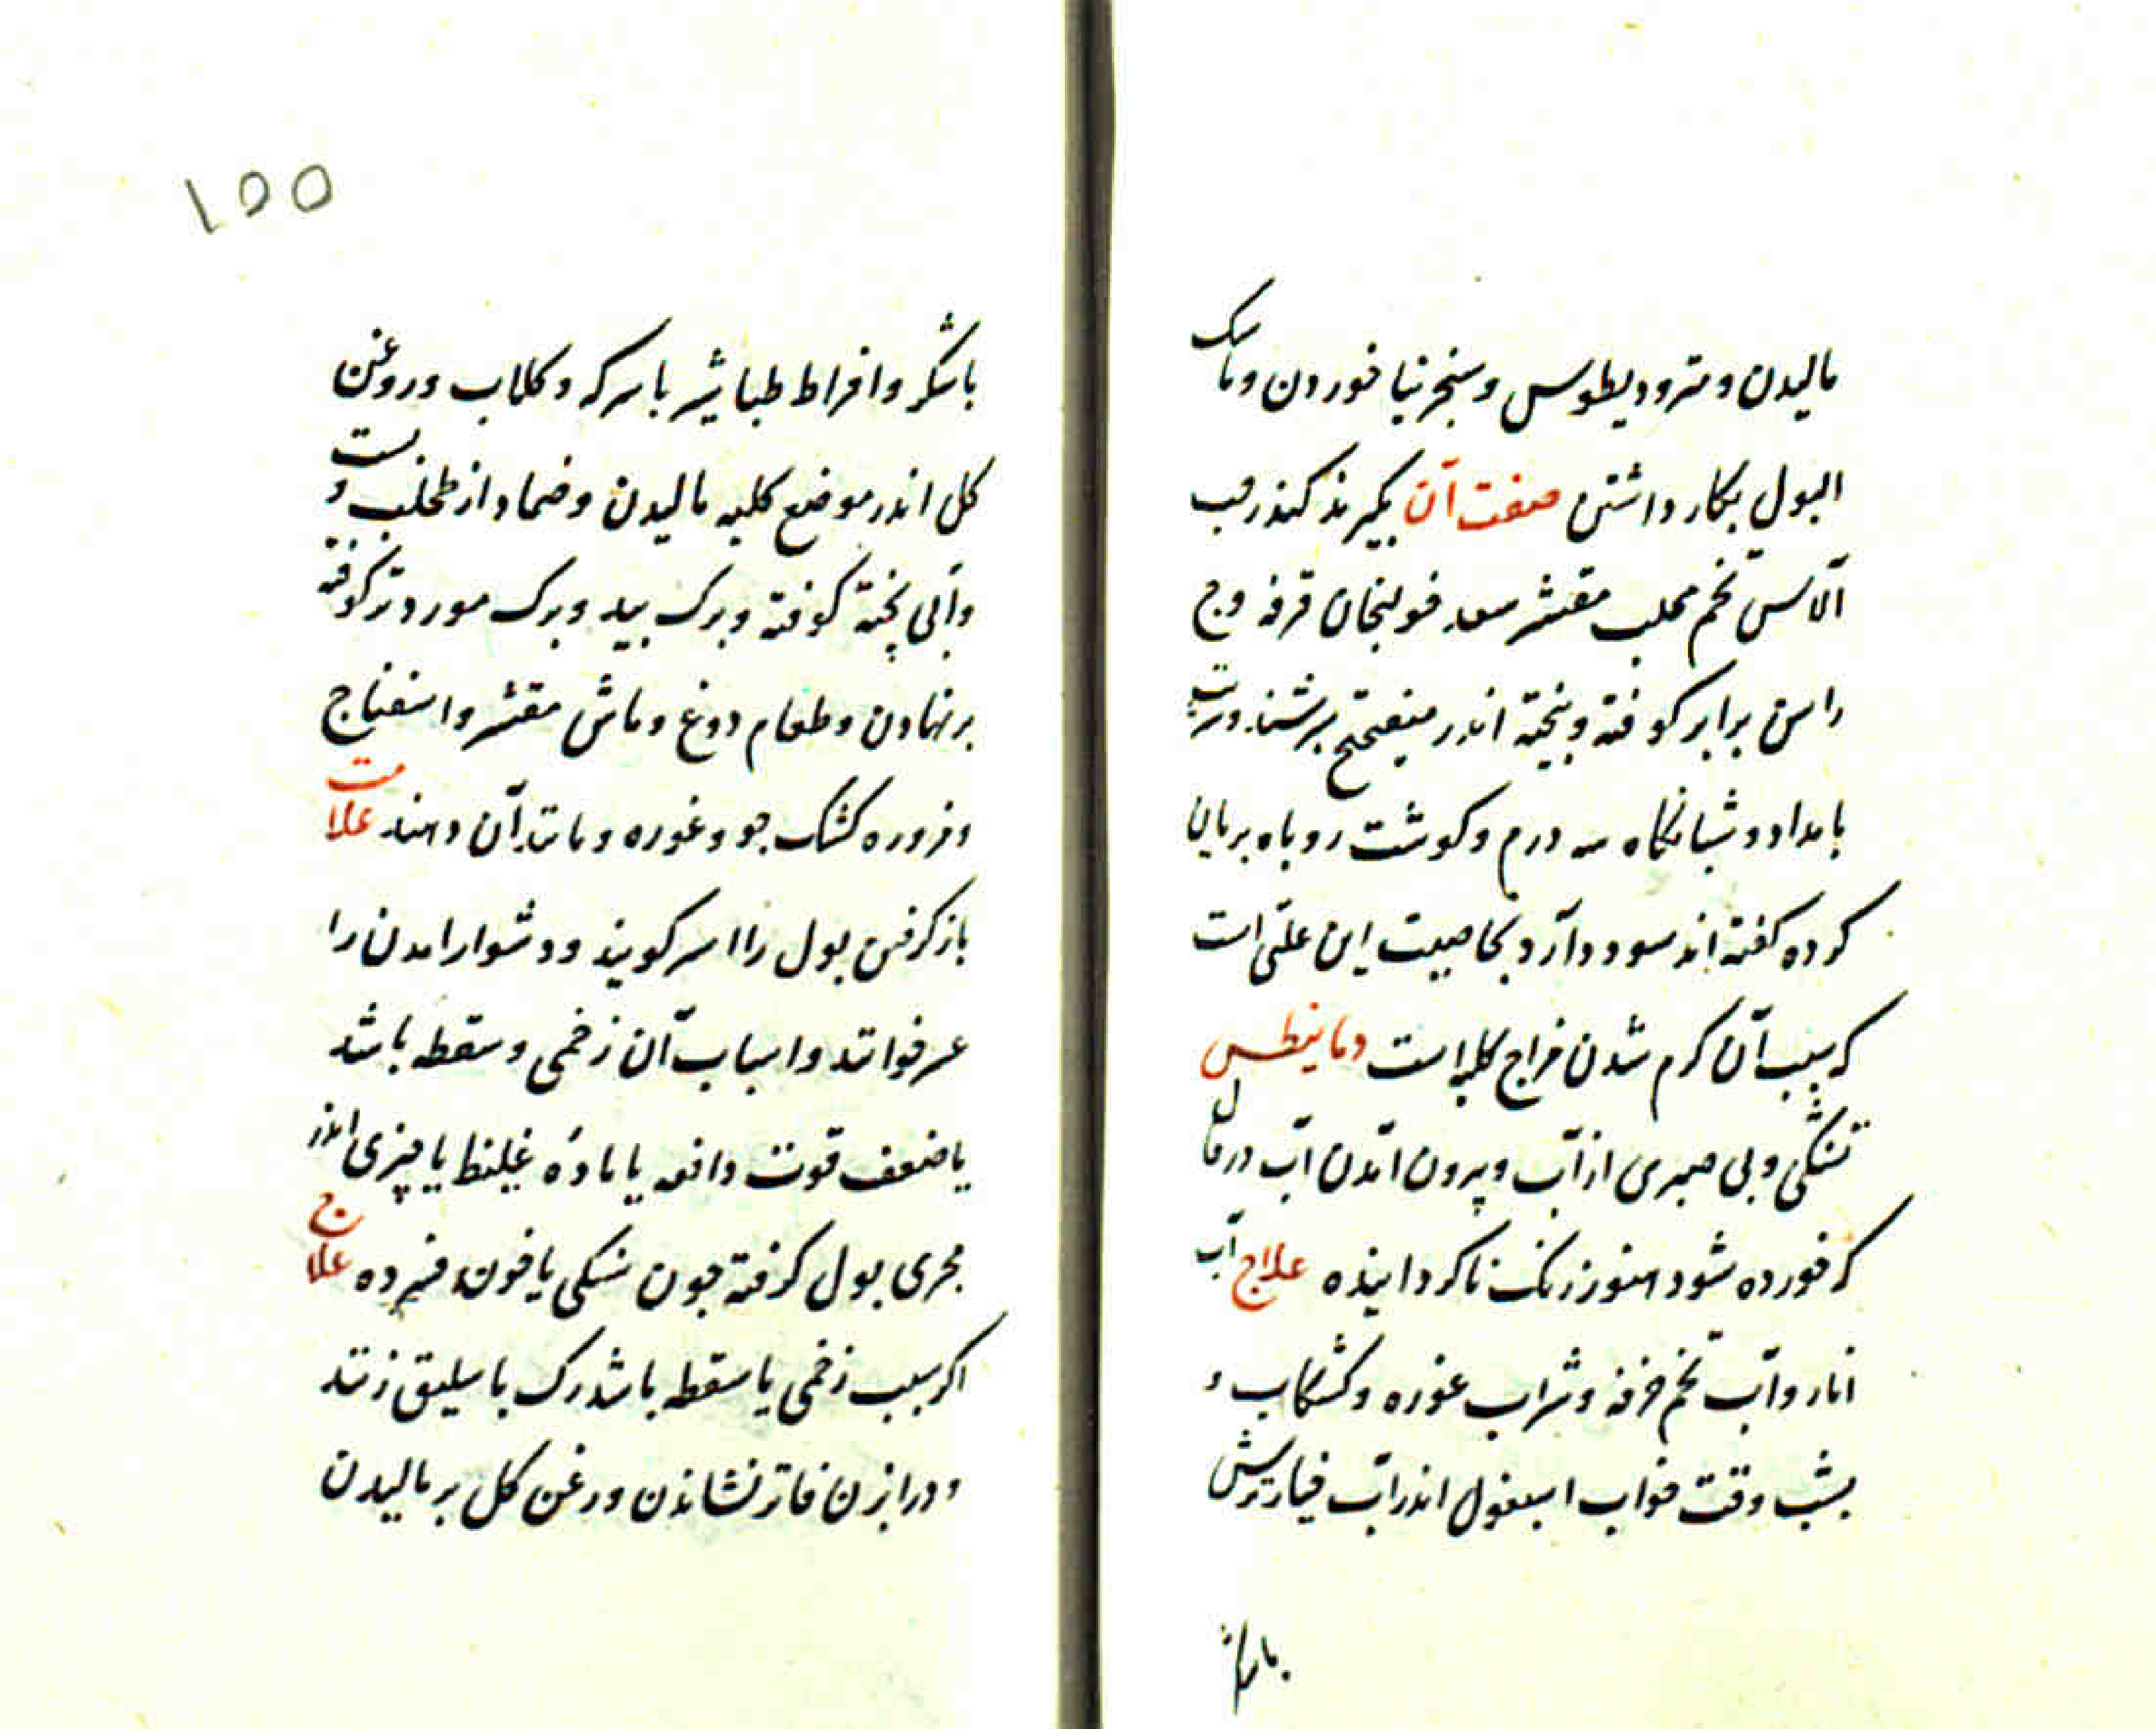 مالیدن و مترودیطوس و سنجرنیا خوردن و ماسک
البول بکار داشتن صفت آن بگیرند کندر حب
آلاس تخم محلب مقشر سعد خولنجان قرفه وج
راسن برابر کوفته و بیخته اندر میفختج بسرشند و شربت
بامداد و شبانکاه سه درم و کوشت روباه بریان
کرده کفته اند سود دارد بخاصیت این علتی است
که سبب آن کرم شدن مزاج کلیه است دیابیطس
تشنکی و بی صبری از آب و بیرون آمدن آب در حال
که خورده شود هنوز رنک ناکردانیده علاج آب
انار و آب تخم خرفه و شراب غوره و کشکاب و
بشب وقت خواب اسبغول اندر آب خیار ترش
باشکر
۱۵۵
باشکر و اقراط طباشیر با سرکه و کلاب و روغن
کل اندر موضع کلیه مالیدن و ضماد از طحلب و بست
و آبی پخته کوفته و برک بید و برک مورد تر کوفته
برنهادن و طعام دوغ و ماش مقشر و اسفناج
و مزوره کشک جو و غوره و مانند آن دهند علامت
بازکرفتن بول را اسر کویند و دشوار امدن را
عسر خوانند و اسباب آن زخمی و سقطه باشد
یا ضعف قوت دافعه یا مادهٔ غلیظ یا چیزی اندر
مجری بول کرفته چون سنکی یا خون فسرده علاج
اکر سبب زخمی یا سقطه باشد رک باسلیق زنند
و در ابزن فاتر نشاندن و روغن کل برمالیدن